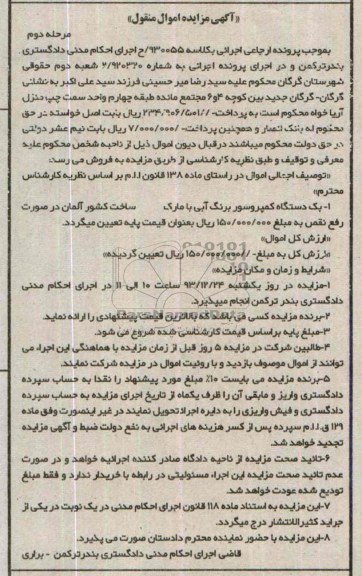 «آگهی مزایده اموال منقول»
مرحله دوم
بموجب پرونده ارجاعی اجرائی بکلاسه ۹۳۰۰۵۵/ج اجرای احکام مدنی دادگستری
بندرترکمن و در اجرای پرونده اجرائی به شماره ۲/۹۲۰۳۲۰ شعبه دوم حقوقی
شهرستان گرگان محکوم علیه سید رضا میر حسینی فرزند سید علی اکبر به نشانی
گرگان- گرگان جدید بین کوچه ۴و۶ مجتمع مائده طبقه چهارم واحد سمت چپ منزل
آریا خواه محکوم است به پرداخت- ۲۳۴/۹۰۶/۵۰۱// ریال بابت اصل خواسته در حق
محکوم له بانک انصار و همچنین پرداخت- /۷/۰۰۰/۰۰۰ ریال بابت نیم عشر دولتی
در حق دولت محکوم میباشند درقبال دیون اموال ذیل از ناحیه شخص محکوم علیه
معرفی و توقیف و طبق نظریه کارشناسی از طریق مزایده به فروش می رسد:
«توصیف اجمالی اموال در راستای ماده ۱۳۸ قانون ا.ا.م بر اساس نظریه کارشناس
محترم»
۱- یک دستگاه کمپروسور برنگ آبی با مارک ساخت کشور آلمان در صورت
رفع نقص به مبلغ ۱۵۰/۰۰۰/۰۰۰ ریال بعنوان قیمت پایه تعیین میگردد.
«ارزش کل اموال»
«ارزش کل به مبلغ- /۱۵۰/۰۰۰/۰۰۰ ریال تعیین گردیده»
«شرایط و زمان و مکان مزایده»
۱-مزایده در روز یکشنبه ۹۳/۱۲/۲۴ ساعت ۱۰ الی ۱۱ در اجرای احکام مدنی
دادگستری بندر ترکمن انجام میپذیرد.
۲-برنده مزایده کسی می باشد که بالاترین قیمت پیشنهادی را ارائه نماید.
۳-مبلغ پایه براساس قیمت کارشناسی شده شروع می شود.
۴-طالبین شرکت در مزایده ۵ روز قبل از زمان مزایده با هماهنگی این اجراء می
توانند از اموال موصوف بازدید و با روئیت اموال در مزایده شرکت نمایند.
۵-برنده مزایده می بایست ۱۰٪ مبلغ مورد پیشنهاد را نقدا به حساب سپرده
دادگستری واریز و مابقی آن را ظرف یکماه از تاریخ اجرای مزایده به حساب سپرده
دادگستری و فیش واریزی را به دایره اجراء تحویل نمایند در غیر اینصورت وفق ماده
۱۲۹ ق.ا.ا.م سپرده پس از کسر هزینه های اجرائی به نفع دولت ضبط و آگهی مزایده
تجدید خواهد شد.
۶-تائید صحت مزایده از ناحیه دادگاه صادر کننده اجرائیه خواهد و در صورت
عدم تائید صحت مزایده این اجراء مسئولیتی در رابطه با خریدار ندارد و فقط مبلغ
تودیع شده عودت خواهد شد.
۷-این مزایده به استناد ماده ۱۱۸ قانون اجرای احکام مدنی در یک نوبت در یکی از
جراید کثیرالانتشار درج میگردد.
۸-این مزایده با حضور نماینده محترم دادستان صورت می پذیرد.
قاضی اجرای احکام مدنی دادگستری بندرترکمن - براری